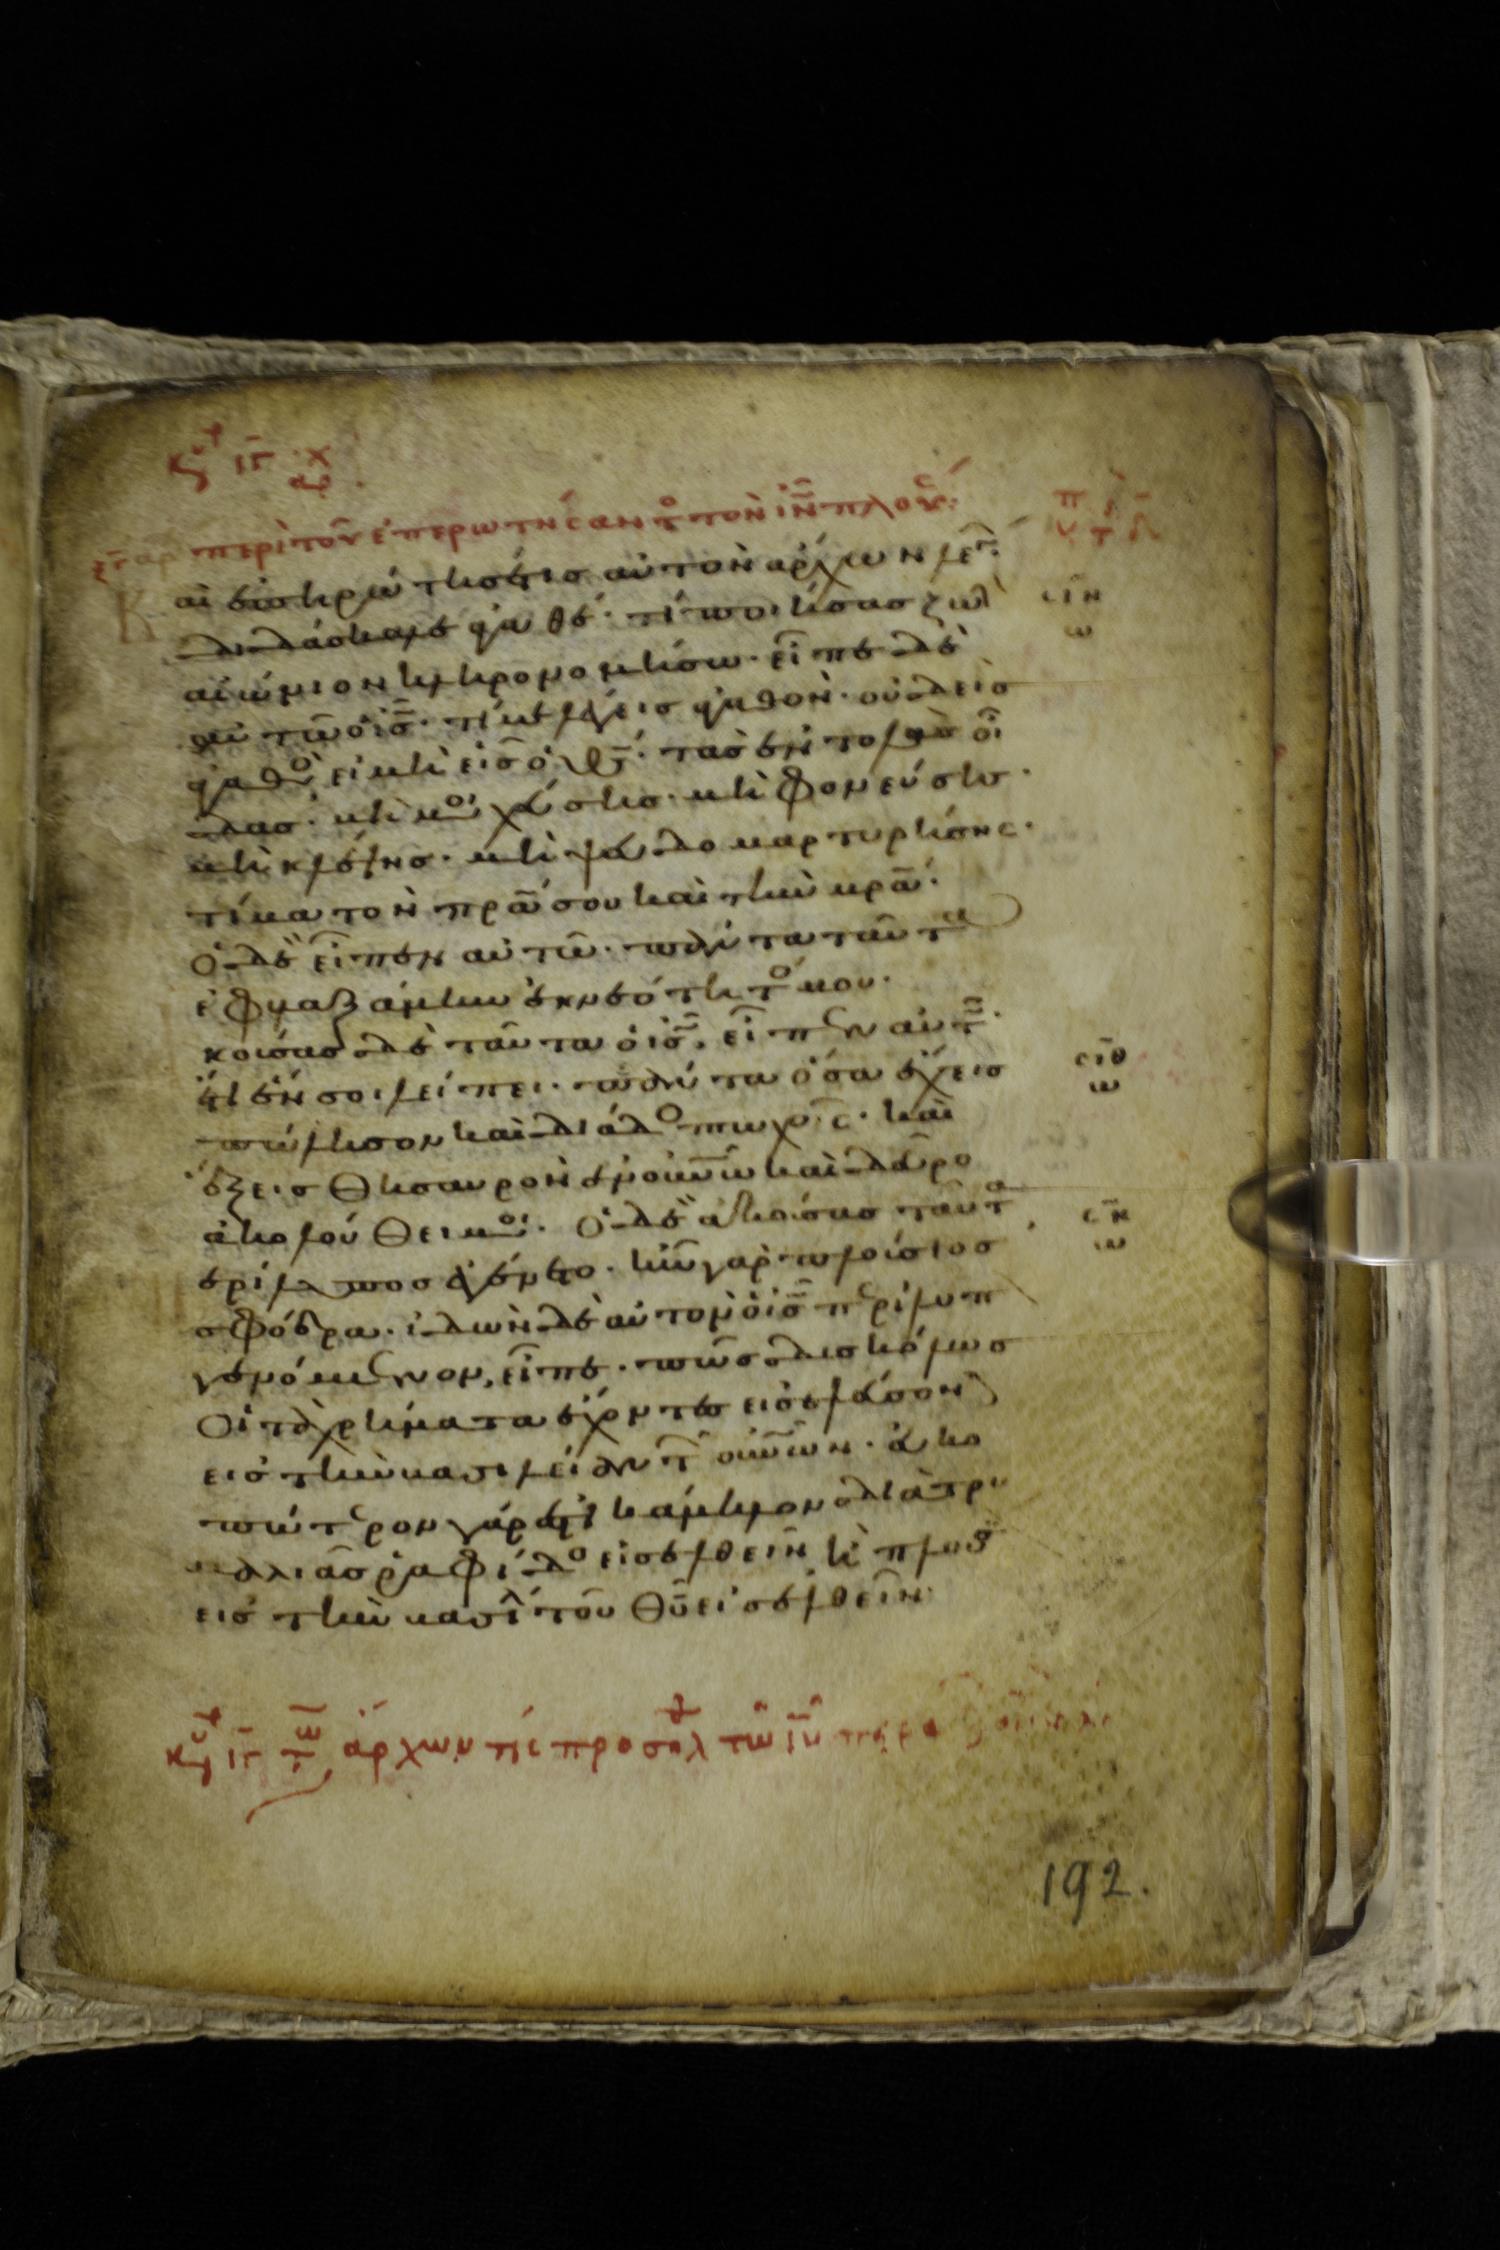 περὶ τοῦ ἐπερωτήσαντ τὸν ιν πλου
αὶ ἐπηρώτησέ τις αὐτὸν ἄρχων λέγ
διδάσκαλε ἀγαθέ· τί ποιήσας ζωὴ
αἰώνιον κληρονομήσω· εἶπε δὲ
αὐτῶ ὁ ις· τί με λέγεις ἀγαθὸν· οὐδεὶς
ἀγαθὸ εἰ μὴ εἷς ὁ θς· τὰς ἐντολὰς οἶ
δας· μὴ μοιχεύσης· μὴ φονεύσης·
μὴ κλέψης· μὴ ψευδομαρτυρήσης·
τίμα τὸν πρα σου καὶ τὴν μρα·
ὁ δὲ εἶπεν αὐτῶ· πάντα ταῦτα
ἐφυλαξάμην ἐκ νεότητό μου·
κούσας δὲ ταῦτα ὁ ις, εἶπεν αὐτ·
ἔτι ἕν σοι λείπει· πάντα ὅσα ἔχεις
πώλησον καὶ διάδο πτωχοῖς· καὶ
ἕξεις θησαυρὸν ἐν οὐνω καὶ δεῦρο
ἀκολούθει μοι· ὁ δὲ ἀκούσας ταῦτα
ερίλυπος ἐγένετο· ἦν γὰρ πλούσιος
σφόδρα· ἰδὼν δὲ αὐτὸν ὁ ις περίλυπ
γενόμενον, εἶπε· πῶς δυσκόλως
οἱ τὰ χρήματα ἔχοντες εἰσελεύσον
εἰς τὴν βασιλείαν τ οὐνων· εὐκο
πώτερον γάρ ἐστι κάμηλον διὰ τρυ
μαλιᾶς ῥαφίδο εἰσελθεῖν ἢ πλουσ
εἰς τὴν βασι τοῦ θυ εἰσελθεῖν
ἄρχων τίς προσηλ τῶ ιυ
192.